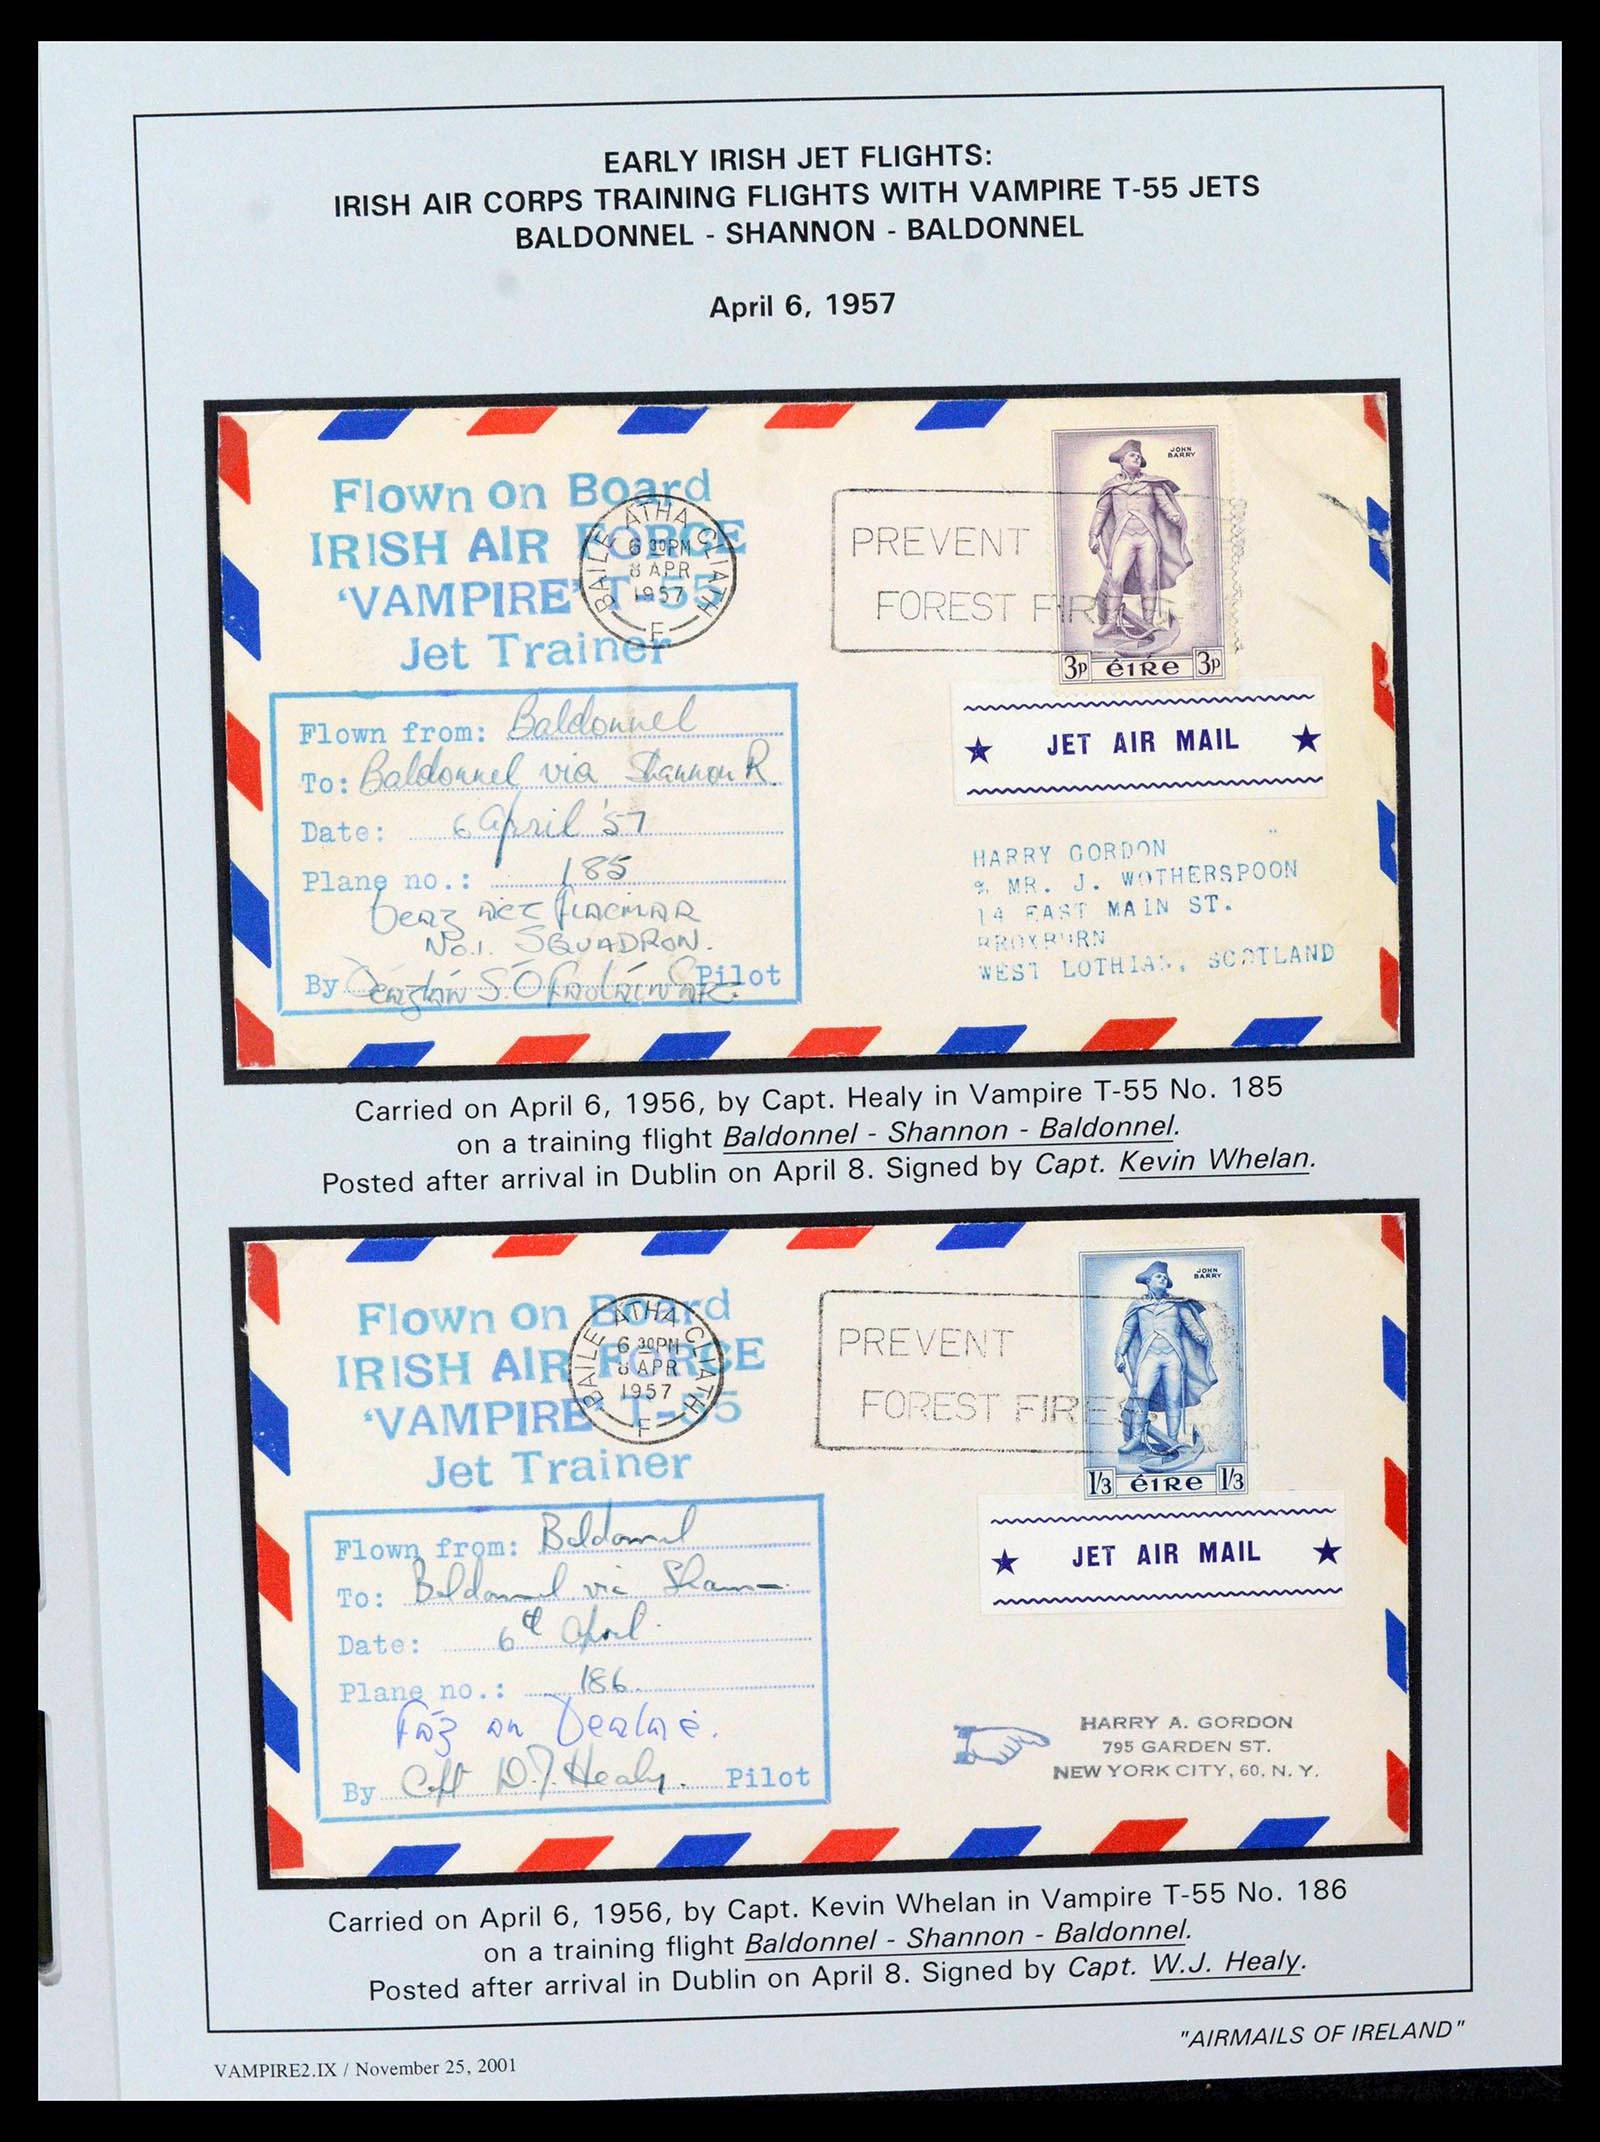 EARLY IRISH JET FLIGHTS:
IRISH AIR CORPS TRAINING FLIGHTS WITH VAMPIRE T-55 JETS
BALDONNEL - SHANNON - BALDONNEL
April 6, 1957
Flown on Board
IRISH AIR FORCE
'VAMPIRE' T-55
Jet Trainer
BAILE ATHA CLIATH
6 30PM
8 APR
1957
F
PREVENT
FOREST FIRES
JOHN
BARRY
3p éIRe 3p
★ JET AIR MAIL ★
Flown from: Baldonnel
To: Baldonnel via Shannon R.
Date: 6 April '57
Plane no.: 185
No.1. SQUADRON.
By Pilot
HARRY GORDON
% MR. J. WOTHERSPOON
14 EAST MAIN ST.
BROXBURN
WEST LOTHIAN, SCOTLAND
Carried on April 6, 1956, by Capt. Healy in Vampire T-55 No. 185
on a training flight Baldonnel - Shannon - Baldonnel.
Posted after arrival in Dublin on April 8. Signed by Capt. Kevin Whelan.
Flown on Board
IRISH AIR FORCE
'VAMPIRE' T-55
Jet Trainer
BAILE ATHA CLIATH
6 30PM
8 APR
1957
F
PREVENT
FOREST FIRES
JOHN
BARRY
1/3 éIRe 1/3
★ JET AIR MAIL ★
Flown from: Baldonnel
To: Baldonnel via Shannon
Date: 6th April.
Plane no.: 186.
By Capt W.J. Healy. Pilot
HARRY A. GORDON
795 GARDEN ST.
NEW YORK CITY, 60, N. Y.
Carried on April 6, 1956, by Capt. Kevin Whelan in Vampire T-55 No. 186
on a training flight Baldonnel - Shannon - Baldonnel.
Posted after arrival in Dublin on April 8. Signed by Capt. W.J. Healy.
"AIRMAILS OF IRELAND"
VAMPIRE2.IX / November 25, 2001